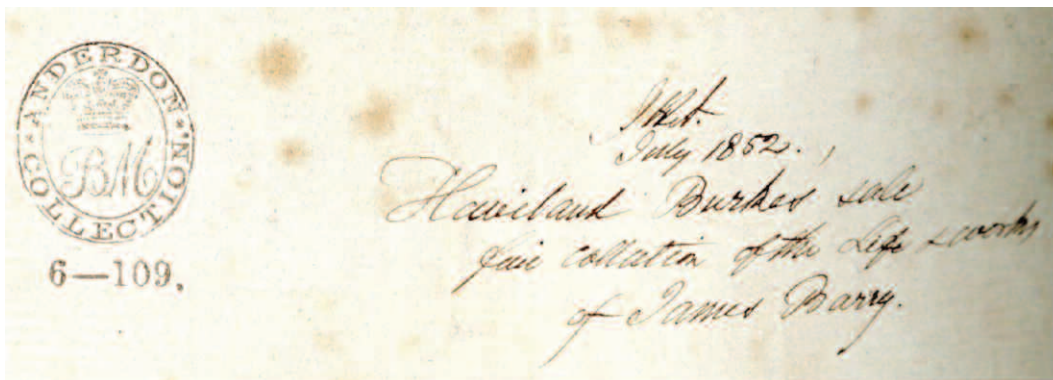 ANDERDON COLLECTION
BM
6—109.
July 1852.,
Haviland Burkes sale
fine collection of the Life & works
of James Barry.